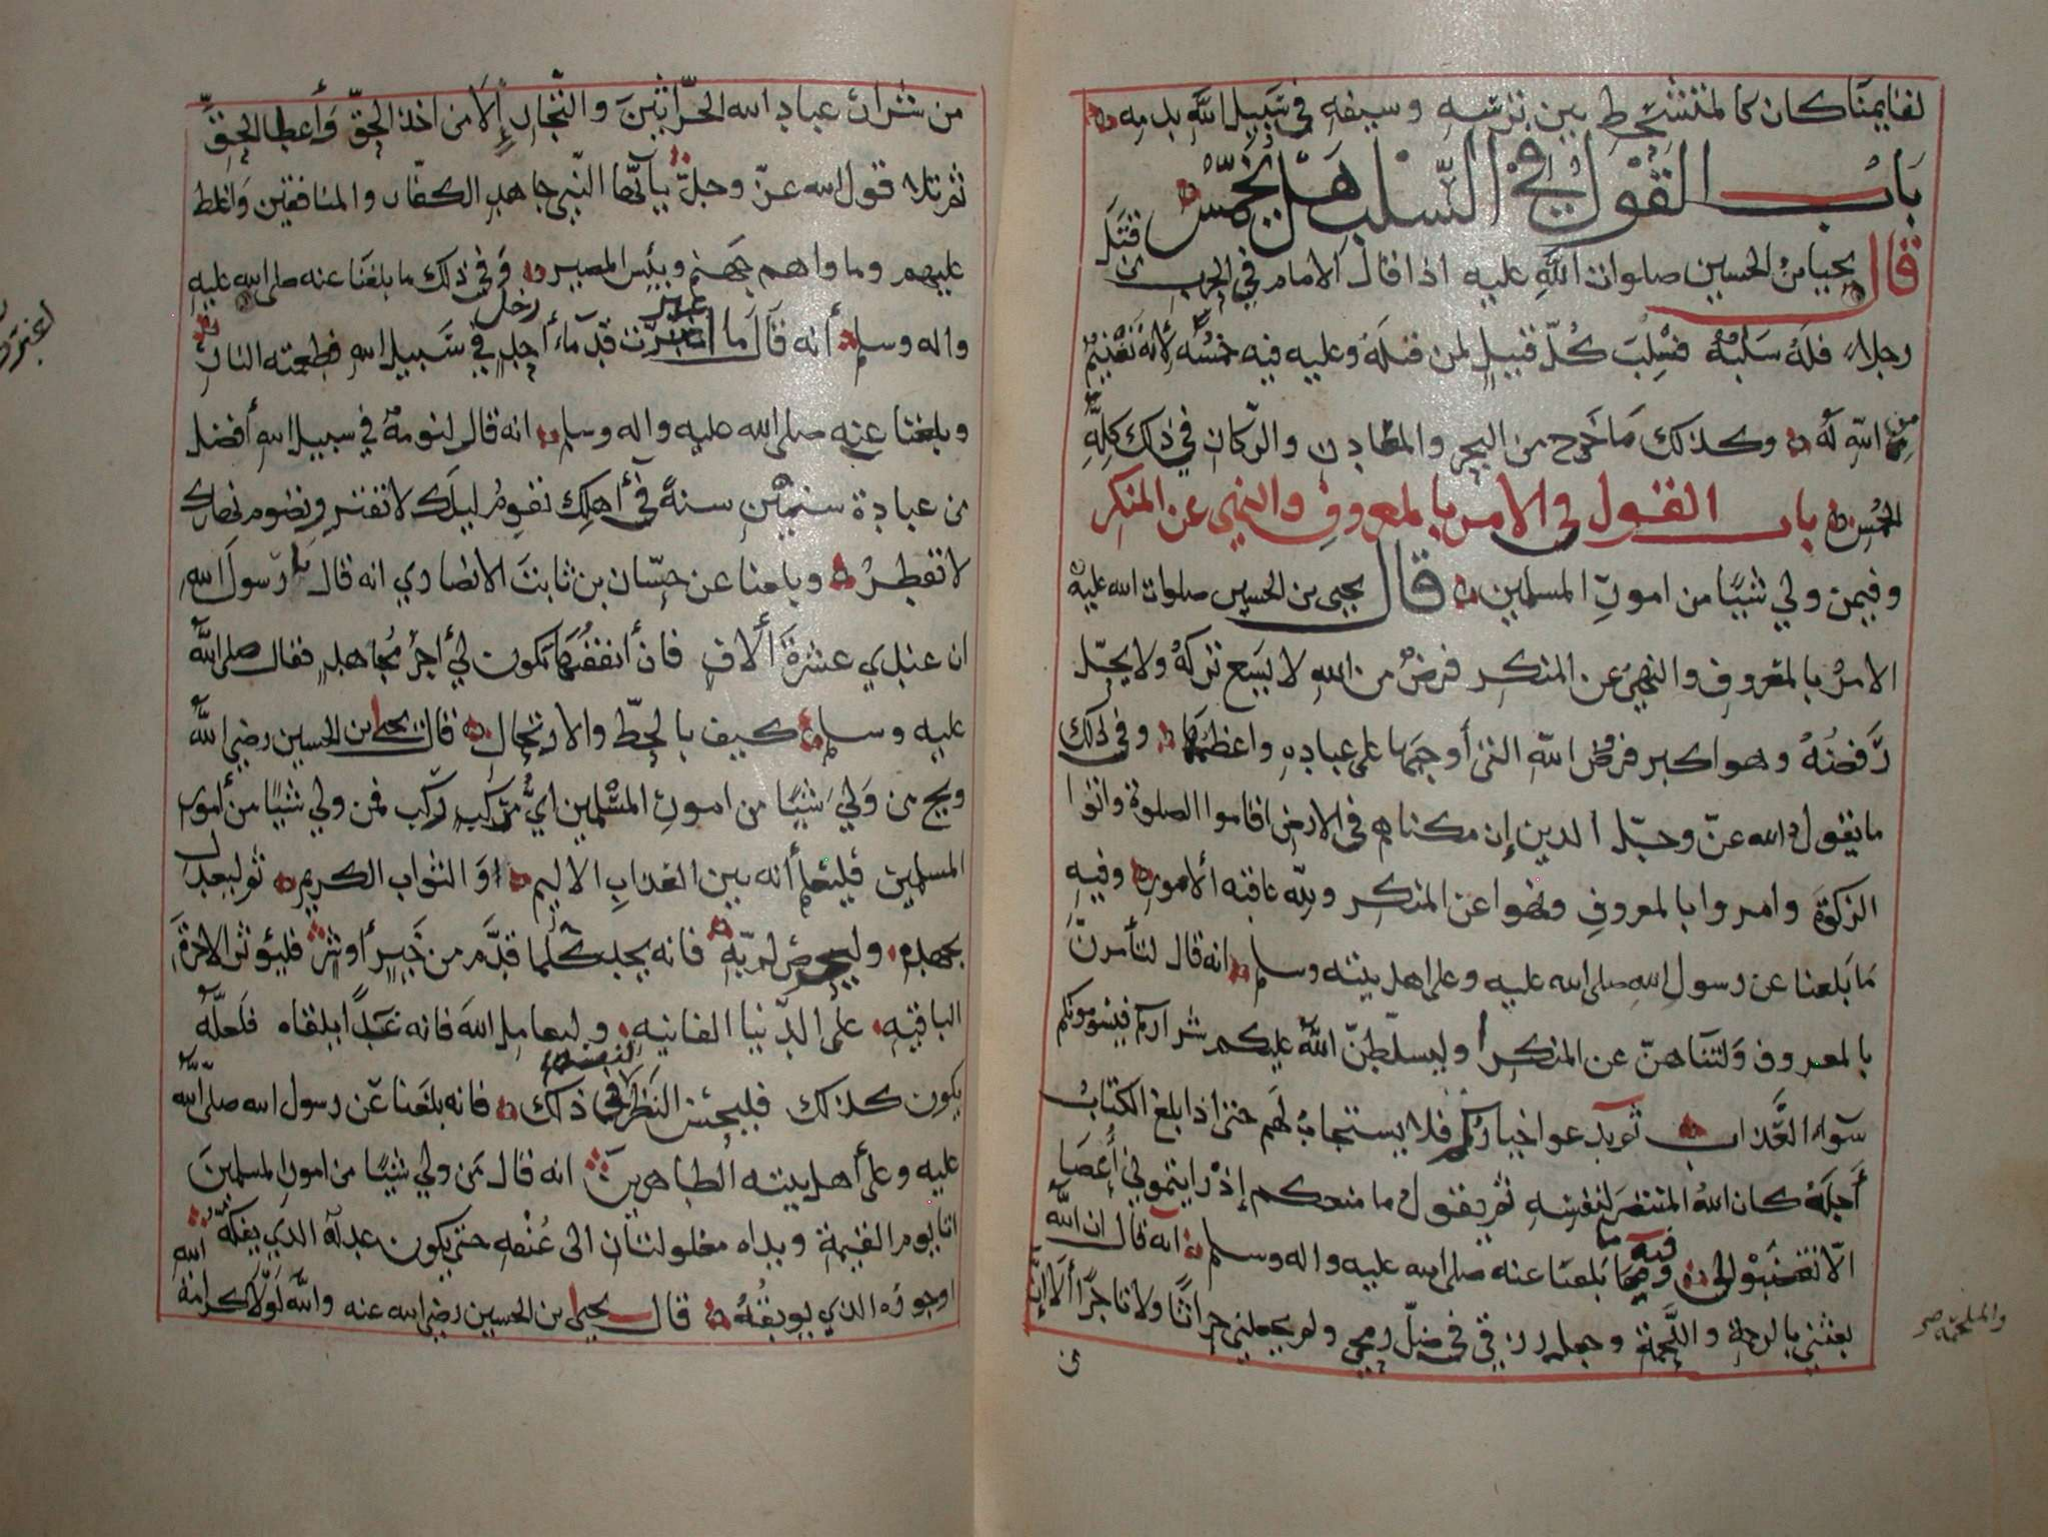 لقايمنا كان كالمتشحط بين ترسه وسيفه في سبيل الله بدمه
باب القول في السلب هل يخمس
قال يحيا بن الحسين صلوات الله عليه اذا قال الامام في الحرب من قتل
رجلا فله سلبه فسلب كل قتيل لمن قتله وعليه فيه خمسه لأنه تغنيم
من الله له وكذلك ما خرج من البحر والمعادن والركاز في ذلك كله
الخمس باب القول في الامر بالمعروف والنهي عن المنكر
وفيمن ولي شيئا من امور المسلمين قال يحيى بن الحسين صلوات الله عليه
الامر بالمعروف والنهي عن المنكر فرض من الله لا يسع تركه ولا يحل
رفضه وهو اكبر فروض الله التي أوجبها على عباده واعظمها وفي ذلك
ما يقول الله عز وجل الذين إن مكناهم في الارض اقاموا الصلوة واتوا
الزكوة وامروا بالمعروف ونهوا عن المنكر ولله عاقبة ألامور وفيه
ما بلغنا عن رسول الله صلى الله عليه وعلى اهل بيته وسلم انه قال لتأمرن
بالمعروف ولتناهن عن المنكر أو ليسلطن الله عليكم شراركم فيسومونكم
سوء العذاب ثم يدعوا خياركم فلا يستجاب لهم حتى اذا بلغ الكتاب
أجله كان الله المنتصر لنفسه ثم يقول ما منعكم إذ رايتموني أعصا
الا تغضبوا لي وفيه ما بلغنا عنه صلى الله عليه واله وسلم انه قال ان الله
بعثني بالرحمة واللحمة وجعل رزقي في ظل رمحي ولم يجعلني حراثا ولا تاجرا ألا إن
والملحمة صح
من شرار عباد الله الحراثين والتجار إلا من اخذ الحق وأعطا الحق
ثم تلا قول الله عز وجل يأيها النبي جاهد الكفار والمنافقين واغلظ
عليهم وماواهم جهنم وبئس المصير وفي ذلك ما بلغنا عنه صلى الله عليه
واله وسلم أنه قال ما اغبرت قدماء رجل في سبيل الله فطعمته النار
وبلغنا عنه صلى الله عليه واله وسلم انه قال لنومة في سبيل الله أفضل
من عبادة ستين سنة في أهلك تقوم ليلك لا تفتر وتصوم نهارك
لا تفطر وبلغنا عن حسان بن ثابت الانصاري انه قال يا رسول الله
ان عندي عشرة ألاف فان أنفقتها يكون لي أجر مجاهد فقال صلى الله
عليه وسلم كيف بالحط والارتحال قال يحيا بن الحسين رضي الله
ويح من ولي شيئا من امور المسلمين اي مركب ركب فمن ولي شيئا من أمور
المسلمين فليعلم أنه بين العذاب الاليم او الثواب الكريم ثم ليعدل
بجهده وليحرص لربه فانه يجد كلما قدم من خير أو شر فليؤثر الاخرة
الباقيه على الدنيا الفانيه وليعامل الله فانه غدا يلقاه فلعله
يكون كذلك فليحسن النظر لنفسه في ذلك فانه بلغنا عن رسول الله صلى الله
عليه وعلى أهل بيته الطاهرين انه قال من ولي شيئا من امور المسلمين
اتا يوم القيمة ويداه مغلولتان الى عنقه حتى يكون عدله الذي يفكه
اوجوره الذي يوبقه قال يحيا بن الحسين رضي الله عنه والله لولا كرامة الله